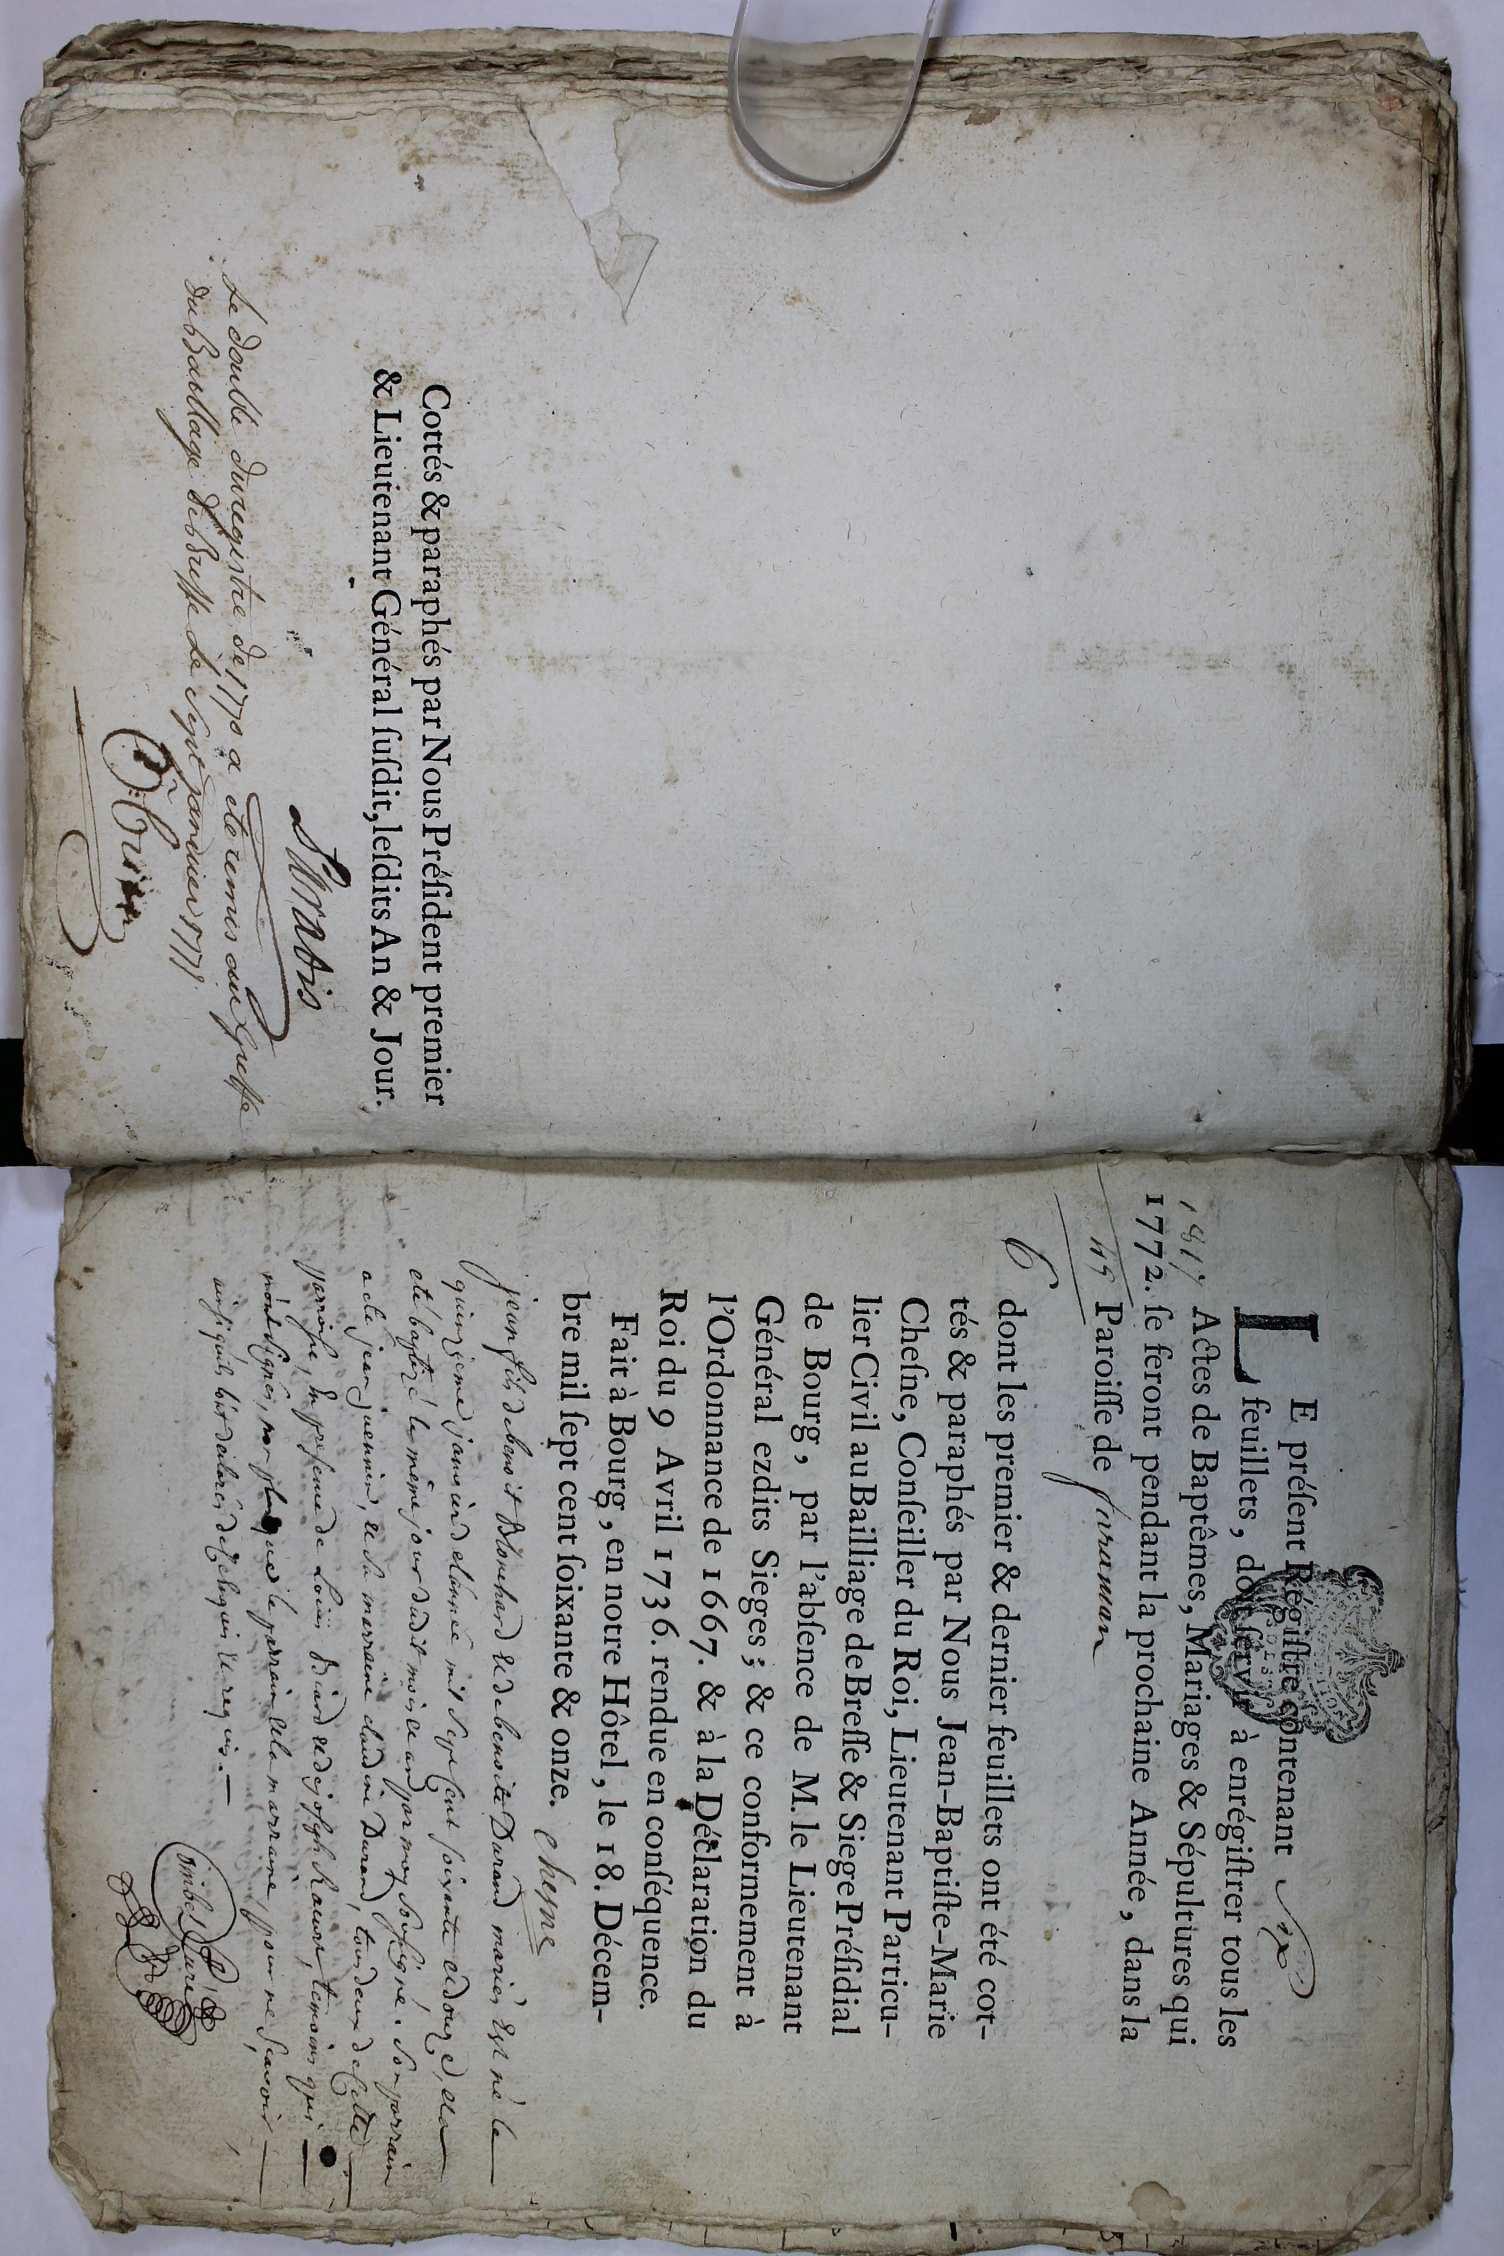 Cottés & paraphés par Nous Préſident premier
& Lieutenant Général ſuſdit, leſdits An & Jour.
Le double du registre de 1770 a eté remis au Greffe
du Bailliage de Bresse le sept janvier 1771
LE préſent Régiſtre contenant Six
feuillets, doit ſervir à enrégiſtrer tous les
Actes de Baptêmes, Mariages & Sépultures qui
1772. ſe feront pendant la prochaine Année, dans la
Paroiſſe de ſaraman
6
dont les premier & dernier feuillets ont été cot-
tés & paraphés par Nous Jean-Baptiſte-Marie
Cheſne, Conſeiller du Roi, Lieutenant Particu-
lier Civil au Bailliage de Breſſe & Siege Préſidial
de Bourg, par l'abſence de M. le Lieutenant
Général ezdits Sieges; & ce conformement à
l'Ordonnance de 1667. & à la Déclaration du
Roi du 9 Avril 1736. rendue en conſéquence.
Fait à Bourg, en notre Hôtel, le 18. Décem-
bre mil ſept cent ſoixante & onze. Chesne
jean fils de benoit Blonhard et de benoite Durand mariés est né le
quinzieme janvier de lannée mil sept cent soixante et douze, et a
eté baptizé le même jour dudit mois et an par moy soussigné. Son parrain
a eté jean juennin, et sa marraine claudine Durand, tous deux de cette
parroisse, en presence de Loüis Biard et de joseph Raccour, temoins qui
n'ont signés, non plus que le parrain et la marraine, pour ne sçavoir
ainsi qu'ils l'ont déclaré de ce enquis et requis.
Curé